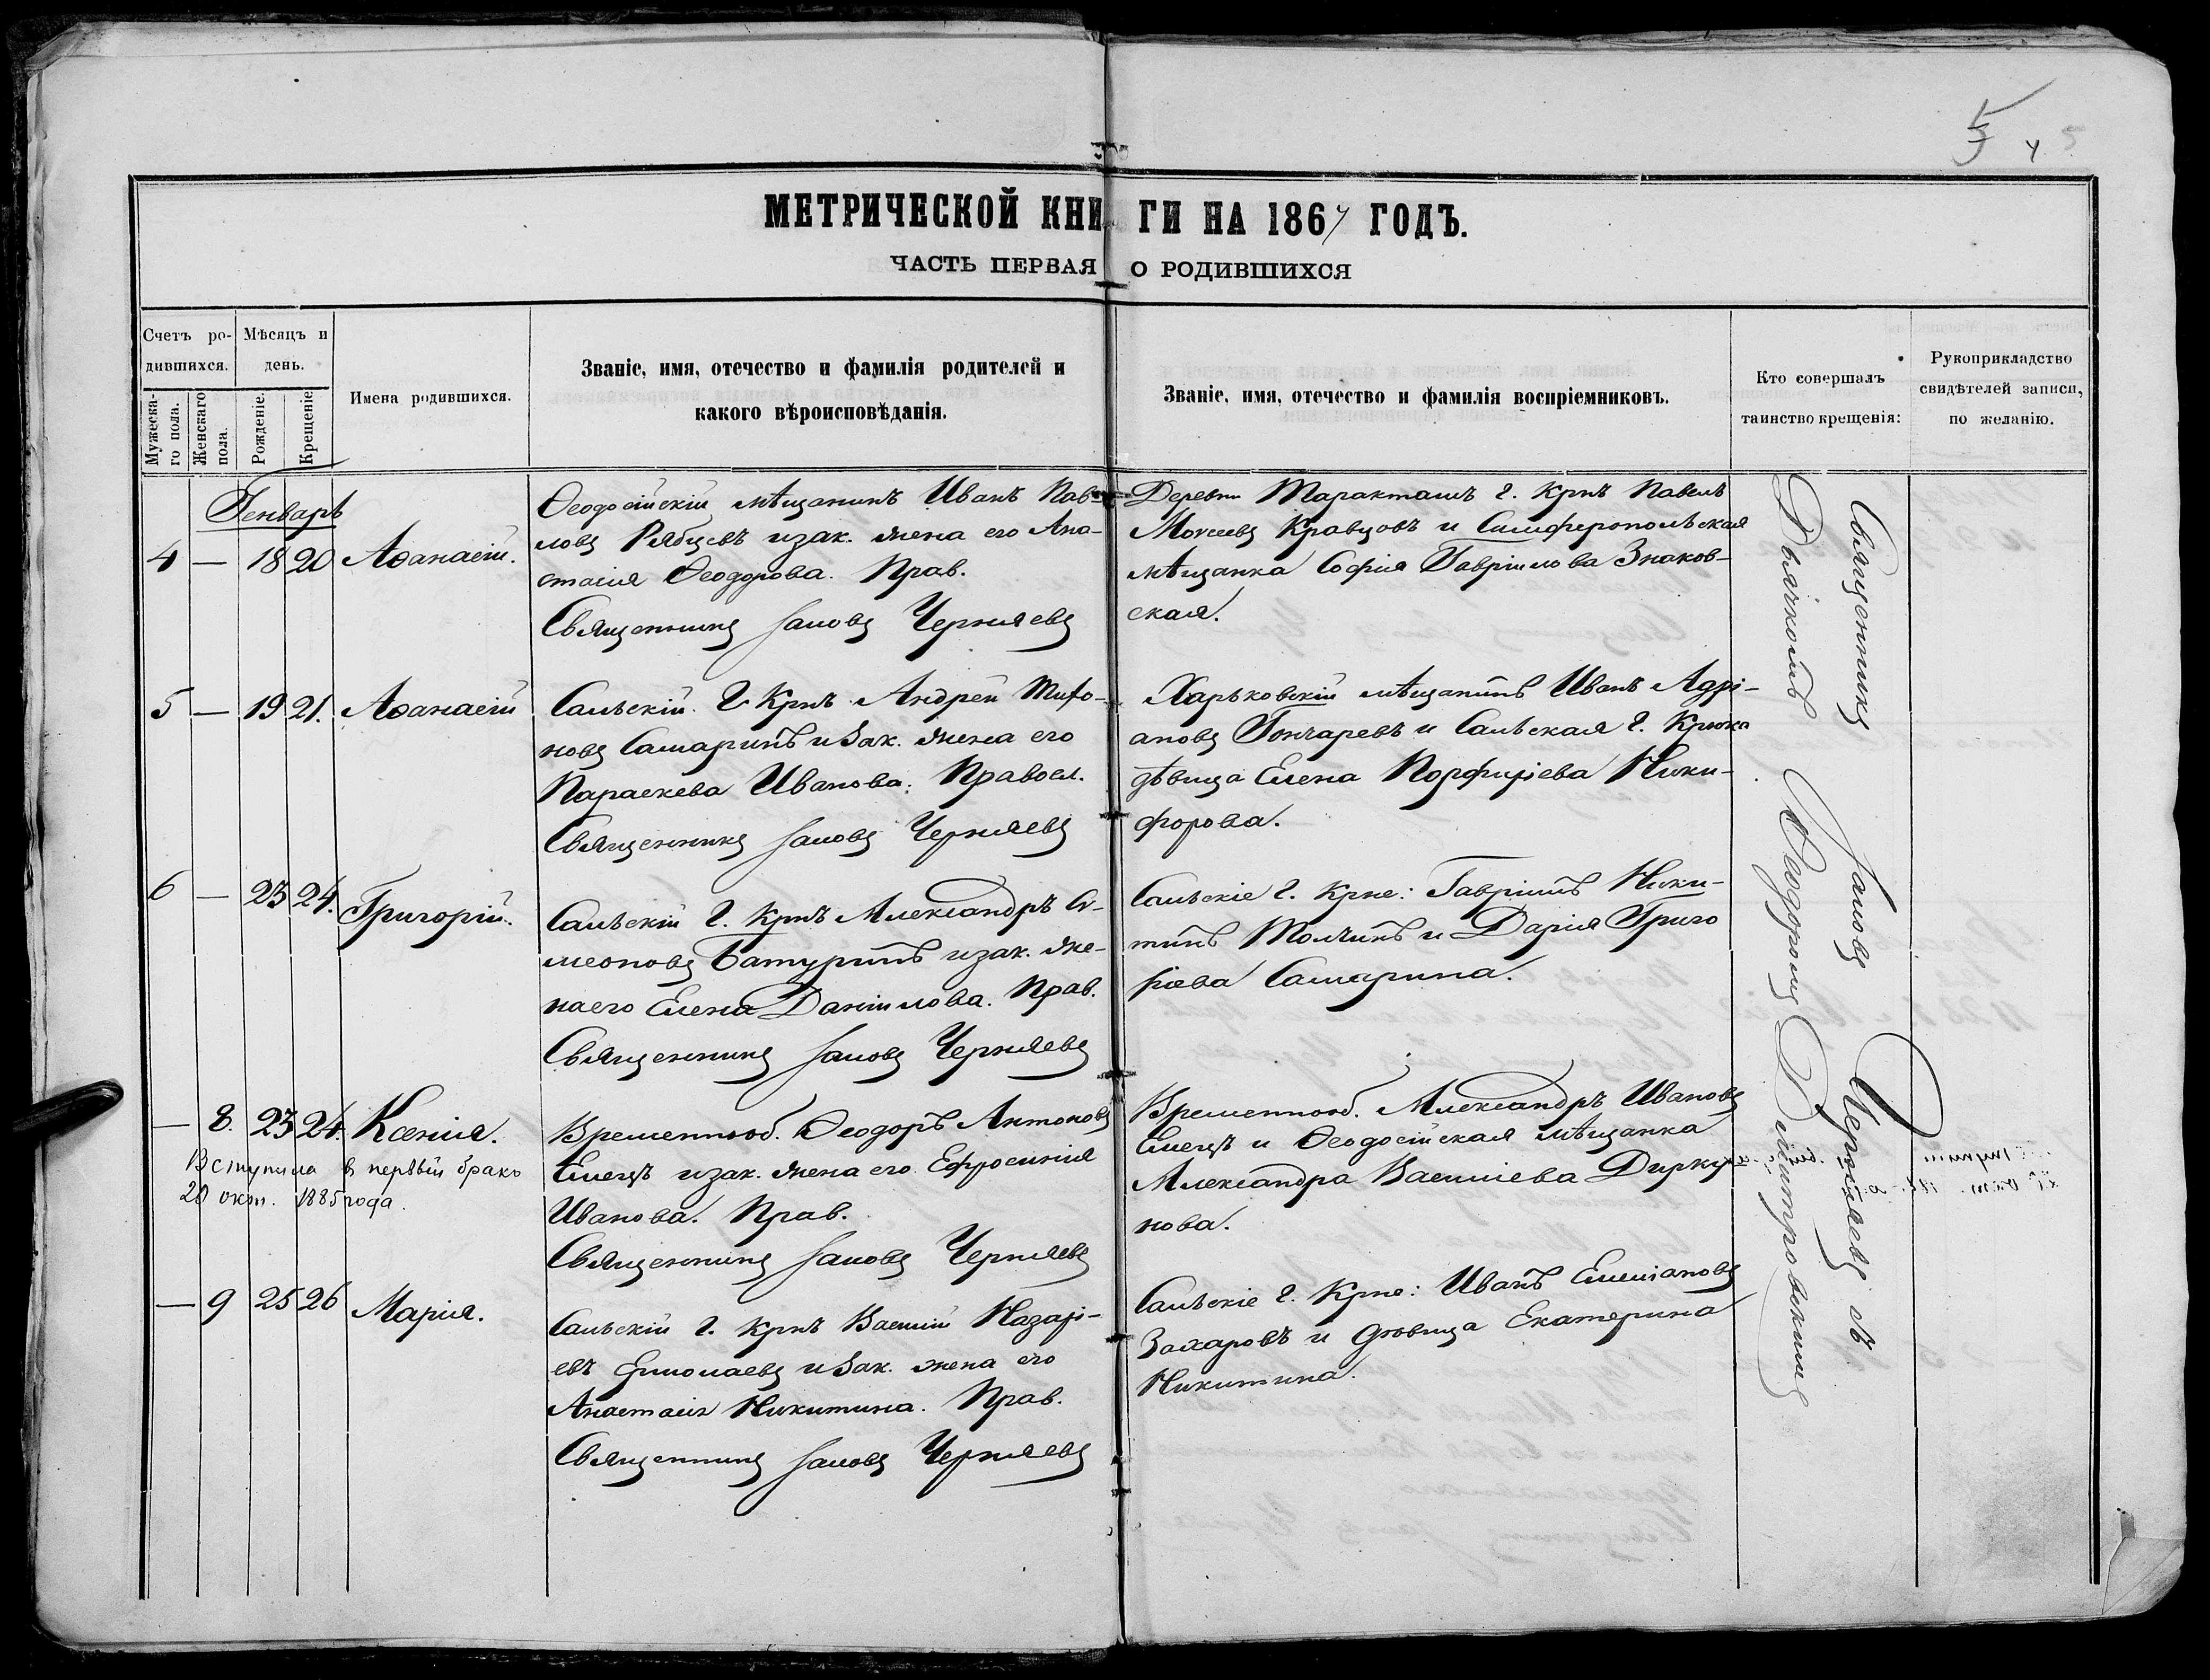 5 4 5
МЕТРИЧЕСКОЙ КНИГИ НА 1867 ГОДЪ.
ЧАСТЬ ПЕРВАЯ О РОДИВШИХСЯ
Счетъ ро-
дившихся.
Мужеска-
го пола.
Женскаго
пола.
Мѣсяцъ и
день.
Рожденіе.
Крещеніе.
Имена родившихся.
Званіе, имя, отечество и фамилія родителей и
какого вѣроисповѣданія.
Званіе, имя, отечество и фамилія воспріемниковъ.
Кто совершалъ
таинство крещенія:
Рукоприкладство
свидѣтелей записи,
по желанію.
Генварь
4 — 18 20 Аѳанасій.
Ѳеодосійскій мѣщанинъ Иванъ Пав-
ловъ Рябцевъ и зак. жена его Ана-
стасія Ѳеодорова. Прав.
Священникъ Іаковъ Черняевъ
Деревни Таракташъ г. крнъ Павелъ
Моисеевъ Кравцовъ и Симферопольская
мѣщанка Софія Гавріилова Знаков-
ская.
5 — 19 21. Аѳанасій
Сальскій г. крнъ Андрей Тифо-
новъ Самаринъ и зак. жена его
Параскева Иванова. Правосл.
Священникъ Іаковъ Черняевъ
Харьковскій мѣщанинъ Иванъ Адрі-
ановъ Гончаревъ и Сальская г. крнка
дѣвица Елена Порфиріева Ники-
форова.
6 — 23 24. Григорій.
Сальскій г. крнъ Александръ Си-
меоновъ Батуринъ и зак. же-
на его Елена Даніилова. Прав.
Священникъ Іаковъ Черняевъ
Сальскіе г. крне: Гавріилъ Ники-
тинъ Толчинъ и Дарія Григо
ріева Самарина.
— 8. 23 24. Ксенія.
Вступила в первый бракъ
20 окт. 1885 года.
Временнооб. Ѳеодоръ Антоновъ
Елецъ и зак. жена его Ефросинія
Иванова. Прав.
Священникъ Іаковъ Черняевъ
Временнооб. Александръ Ивановъ
Елецъ и Ѳеодосійская мѣщанка
Александра Василіева Дирку-
нова.
— 9 25 26 Марія.
Сальскій г. крнъ Василій Назарі-
евъ Ермолаевъ и зак. жена его
Анастасія Никитина. Прав.
Священникъ Іаковъ Черняевъ
Сальскіе г. крне: Иванъ Емеліановъ
Захаровъ и дѣвица Екатерина
Никитина.
Священникъ Іаковъ Черняевъ съ
Дьячкомъ Ѳеодоромъ Димитровскимъ